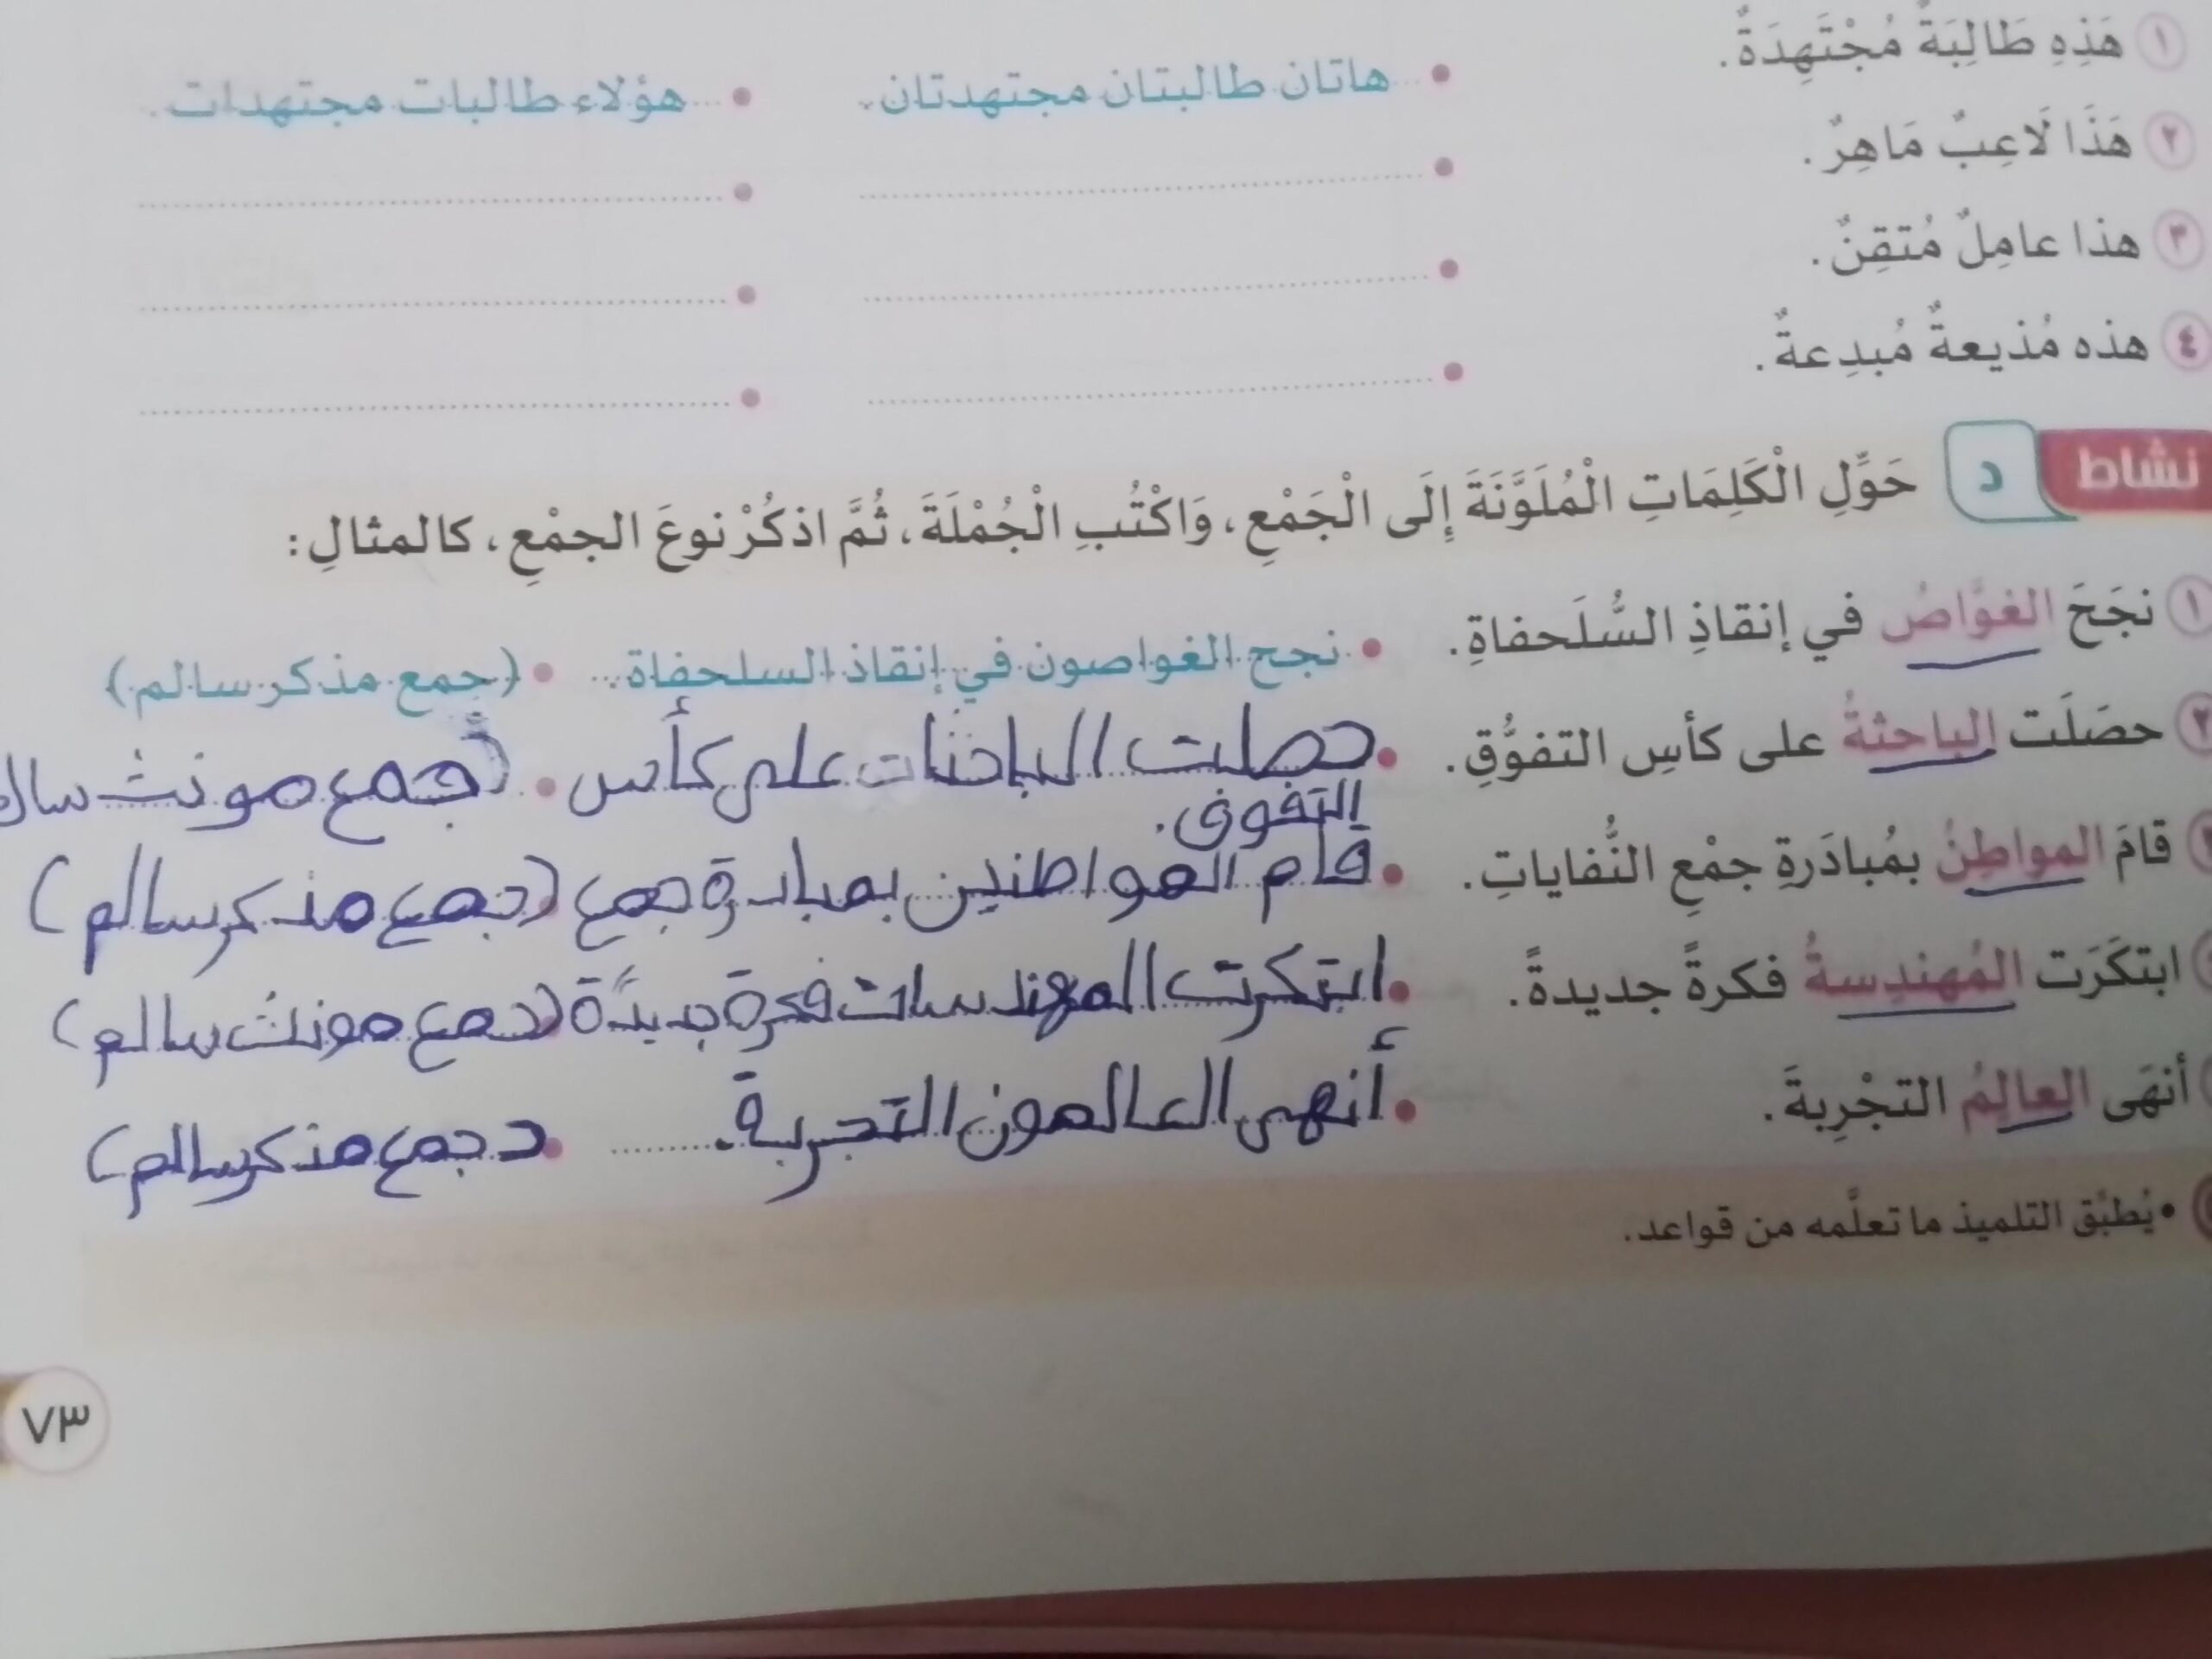 ١ هَذِهِ طَالِبَةٌ مُجْتَهِدَةٌ. • هاتان طالبتان مجتهدتان. • هؤلاء طالبات مجتهدات.
٢ هَذَا لَاعِبٌ مَاهِرٌ. • •
٣ هذا عامِلٌ مُتقِنٌ. • •
٤ هذه مُذيعةٌ مُبدِعةٌ. • •
نشاط د حَوِّلِ الْكَلِمَاتِ الْمُلَوَّنَةَ إِلَى الْجَمْعِ، وَاكْتُبِ الْجُمْلَةَ، ثُمَّ اذكُرْ نوعَ الجمْعِ، كالمثالِ:
١ نجَحَ الغوَّاصُ في إنقاذِ السُّلَحفاةِ. • نجح الغواصون في إنقاذ السلحفاة. • (جمع مذكر سالم)
٢ حصَلَت الباحثةُ على كأسِ التفوُّقِ. • حصلت الباحثات على كأس • (جمع مونث سال
التفوق.
قامَ المواطِنُ بمُبادَرةِ جمْعِ النُّفاياتِ. • قام المواطنين بمبادرة جمع (جمع مذكر سالم)
ابتكَرَت المُهندِسةُ فكرةً جديدةً. • ابتكرت المهندسات فكرة جديدةً (جمع مونث سالم)
أنهَى العالِمُ التجْرِبةَ. • أنهى العالمون التجربة. • (جمع مذكر سالم)
• يُطبِّق التلميذ ما تعلَّمه من قواعد.
٧٣